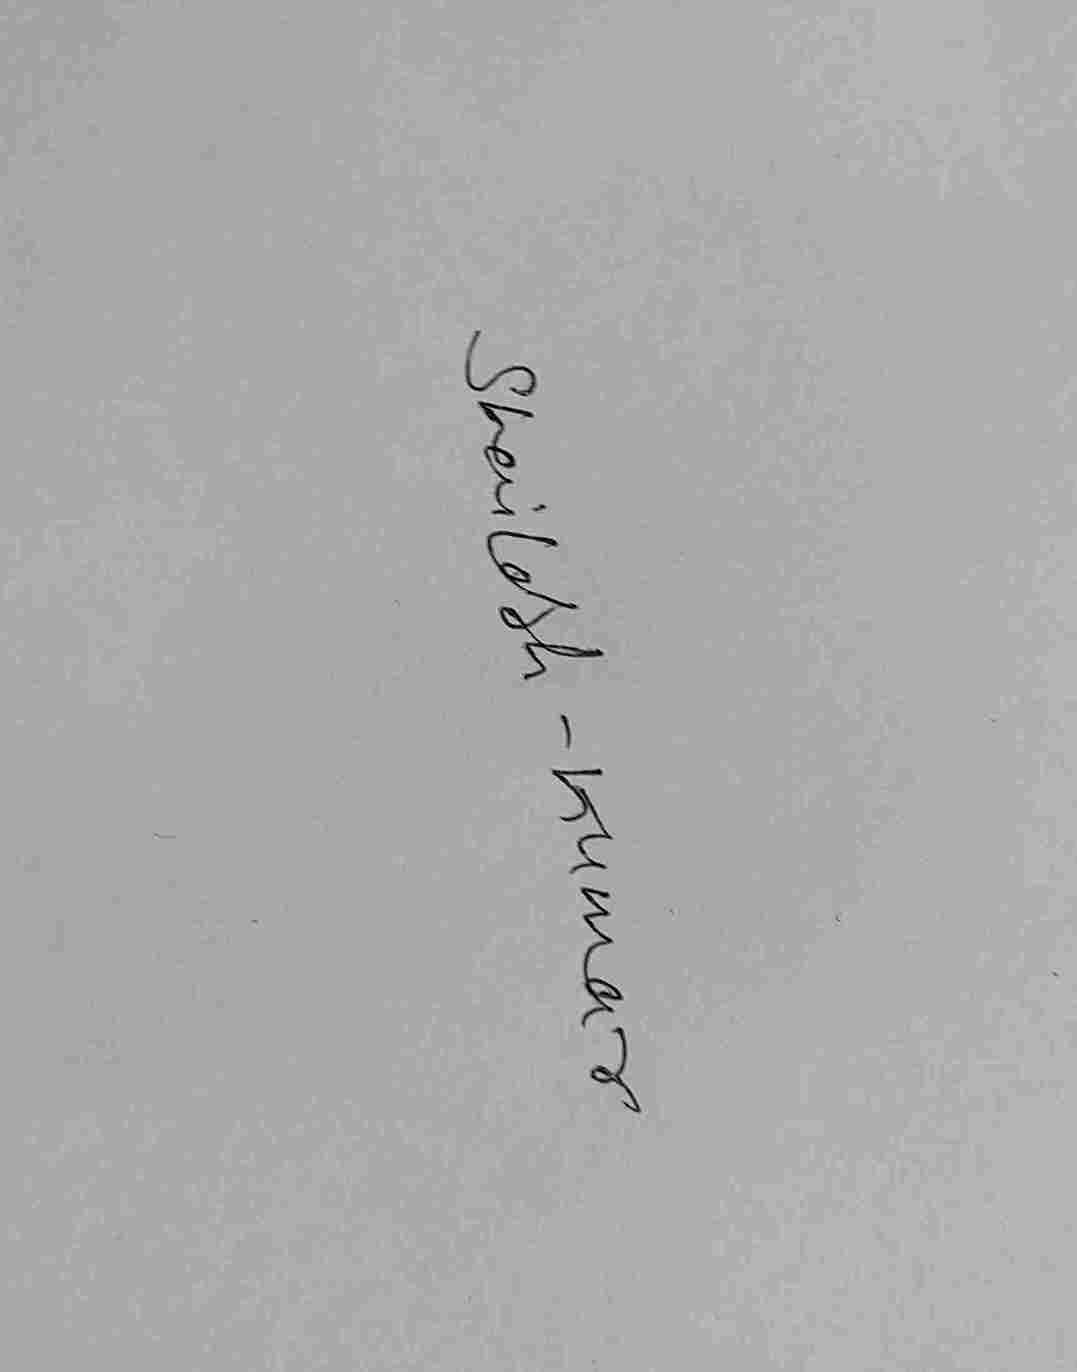 Shailesh - Kumar